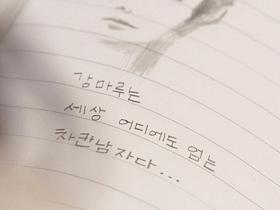 강마루는
세상 어디에도 업는
차칸남자다...